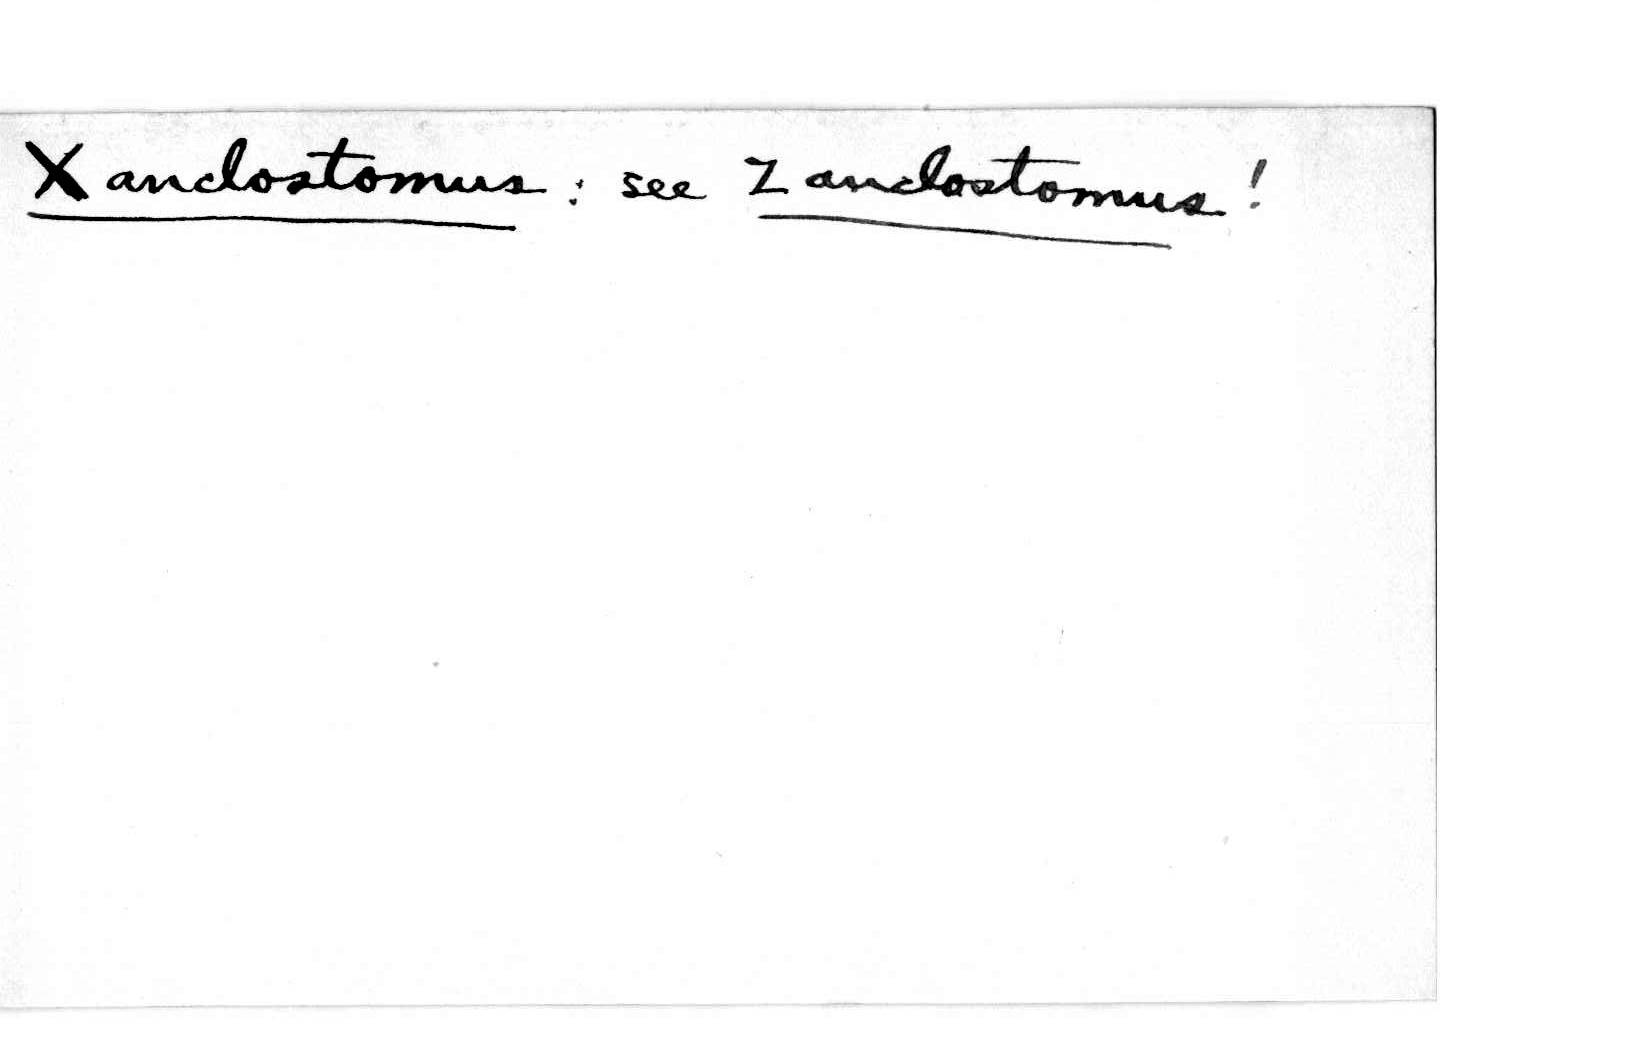 Xanclostomus : see Zanclostomus !